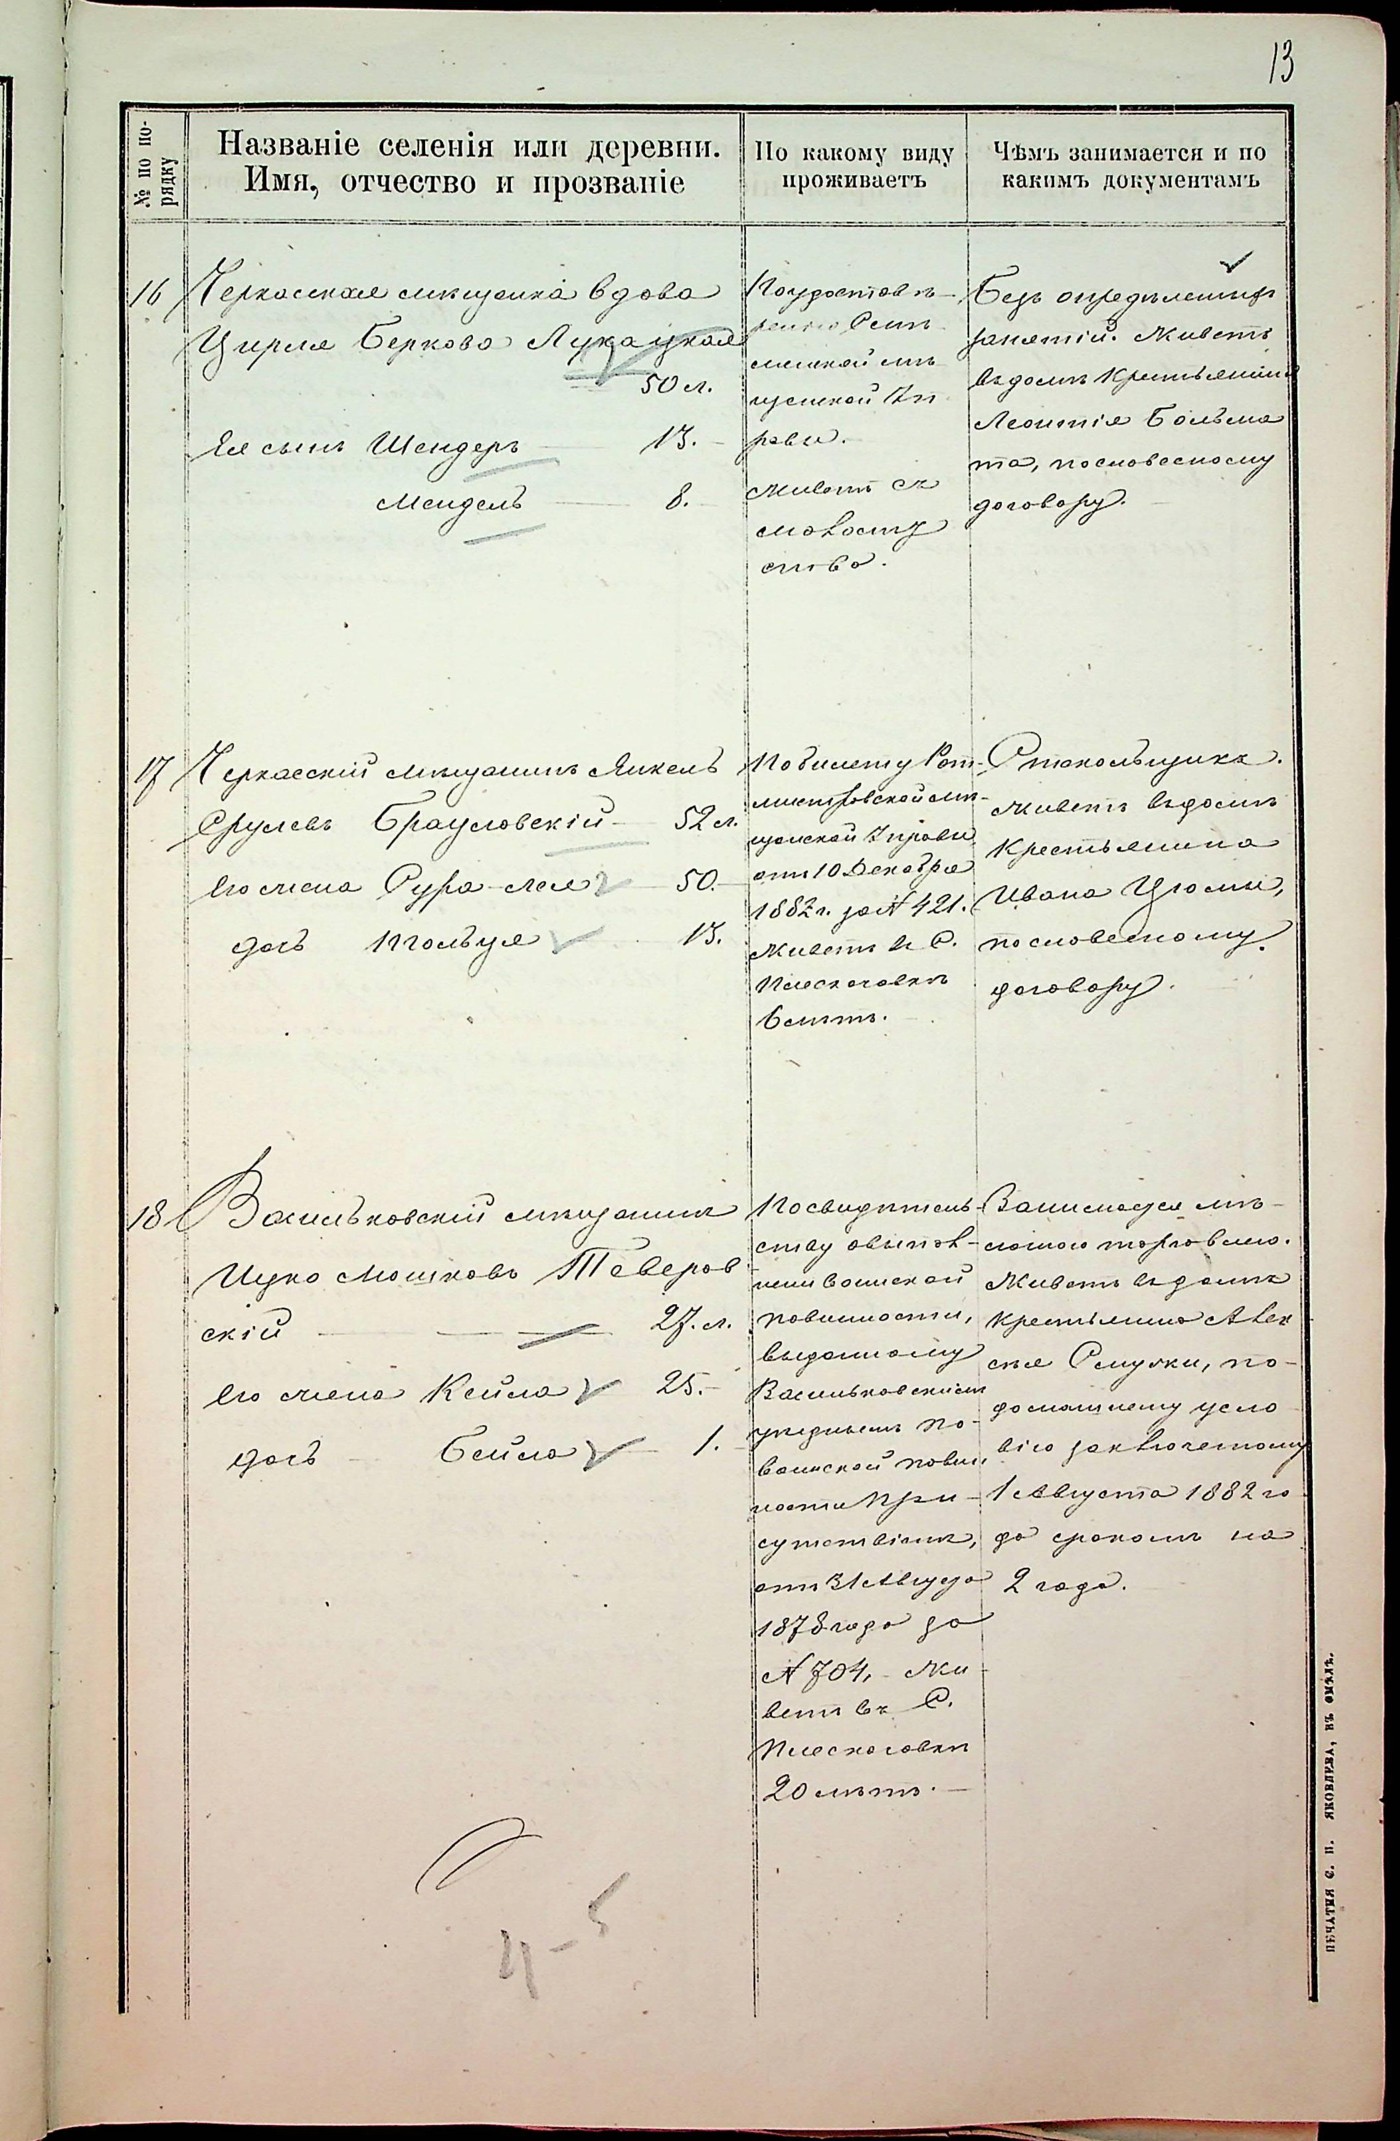 13
№ по по-
рядку
Названіе селенія или деревни.
Имя, отчество и прозваніе
По какому виду
проживаетъ
Чѣмъ занимается и по
какимъ документамъ
16 Черкасская мѣщанка вдова
Цирля Беркова Лукацкая
50 л.
Ея сынъ Шендеръ 13.
Мендель 8.
По удостовѣ-
ренію
мѣ-
щанской Уп
равы.
Живетъ съ
Безъ опредѣленныхъ
занятій. Живетъ
въ домѣ Крестьянина
Леонтія Больма
та, по словесному
договору.
17 Черкасскій мѣщанинъ Янкель
Срулевъ Брауловскій 52 л.
Его жена Сура-Лея 50.
дочь 13.
По билету Рот-
мистровской мѣ-
щанской Управы
отъ 10 Декабря
1882 г. за № 421.
Живетъ въ С.
Плескачовкѣ
6 лѣтъ.
Стекольщикъ.
Живетъ въ домѣ
Крестьянина
Ивана Цюмы,
по словесному
договору.
18 Васильковскій мѣщанинъ
Ицко Мошковъ Тверов
скій 27. л.
Его жена Кейла 25.
дочь Бейла 1.
По свидѣтель-
ству о выпол-
неніи воинской
повинности,
выданному
Васильковскимъ
уѣзднымъ по
воинской повин
ности При-
сутствіемъ,
отъ 31 Августа
1878 года за
№ 704, Жи-
ветъ въ С.
Плескачовкѣ
20 лѣтъ.
Занимается мѣ-
лочною торговлею.
Живетъ въ домѣ
крестьянина Алек
сѣя по-
домашнему усло
вію заключенному
1 Августа 1882 го
да срокомъ на
2 года.
4-5
ПЕЧАТНЯ С. П. ЯКОВЛЕВА, ВЪ СМѢЛѢ.